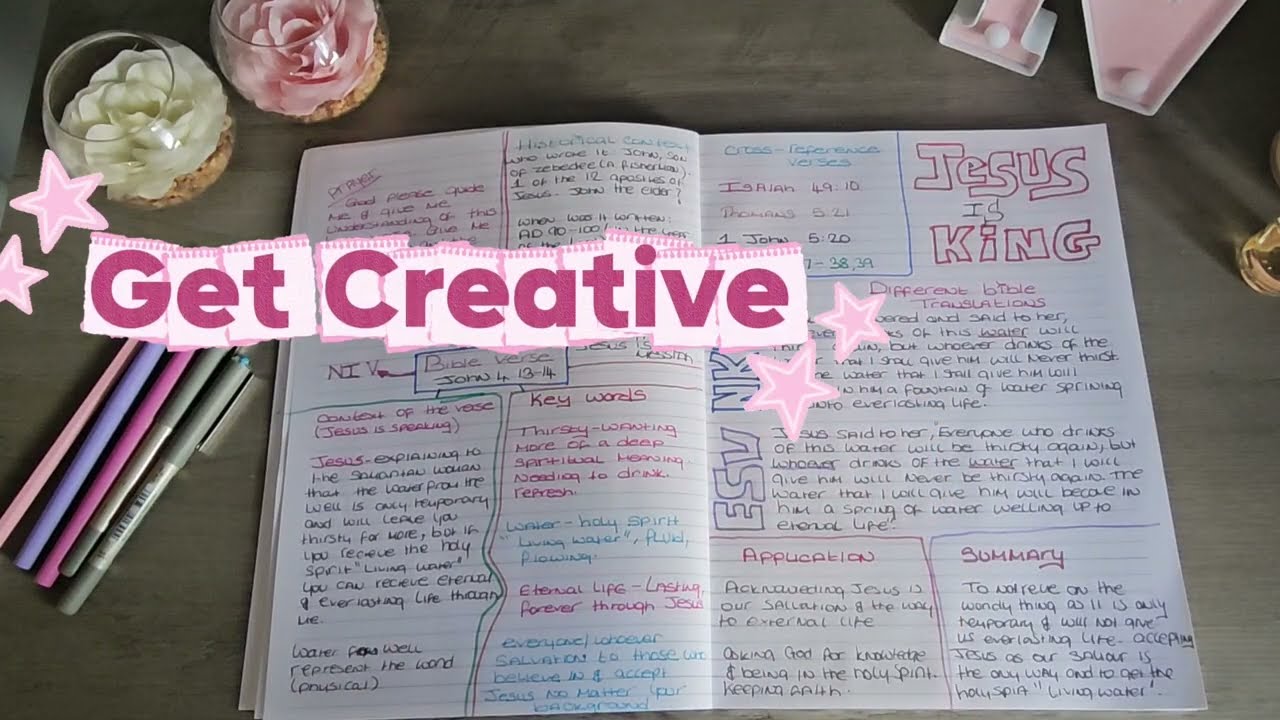 Get Creative
Prayer
God please guide
me & give me
understanding of this
Give me
Historical Context
who wrote it John, son
of zebedee (a fisherman).
1 of the 12 apostles of
Jesus - John the elder?
when was it written:
AD 90-100
of the
NIV
Bible verse
John 4 13-14
Jesus is
Messiah
Context of the verse
(Jesus is speaking)
Jesus - explaining to
the Samaritan woman
that the water from the
well is only temporary
and will leave you
thirsty for more, but if
you recieve the holy
spirit "Living water"
you can recieve eternal
& everlasting life through
me.
Water well
represent the world
(physical)
Key words
Thirsty - wanting
more of a deep
spiritual meaning.
Needing to drink.
refresh.
Water - holy spirit
"Living water", fluid,
flowing.
Eternal life - Lasting,
forever through Jesus
everyone/whoever
salvation to those who
believe in & accept
Jesus no matter your
background
Cross-reference
verses
Isaiah 49:10
Romans 5:21
1 John 5:20
7-38,39
Jesus
is
King
Different bible
Translations
NK
ered and said to her,
of this water will
but whoever drinks of the
that I shall give him will never thirst.
water that I shall give him will
in him a fountain of water springing
into everlasting life.
ESV
Jesus said to her, "Everyone who drinks
of this water will be thirsty again, but
whoever drinks of the water that I will
give him will never be thirsty again. The
water that I will give him will become in
him a spring of water welling up to
eternal life".
Application
Acknowleding Jesus is
our salvation & the way
to external life
asking God for knowledge
& being in the holy spirit.
keeping faith.
Summary
To not relie on the
wordly thing as it is only
temporary & will not give
us everlasting life - accepting
Jesus as our saviour is
the only way and to get the
holy spirit "living water".